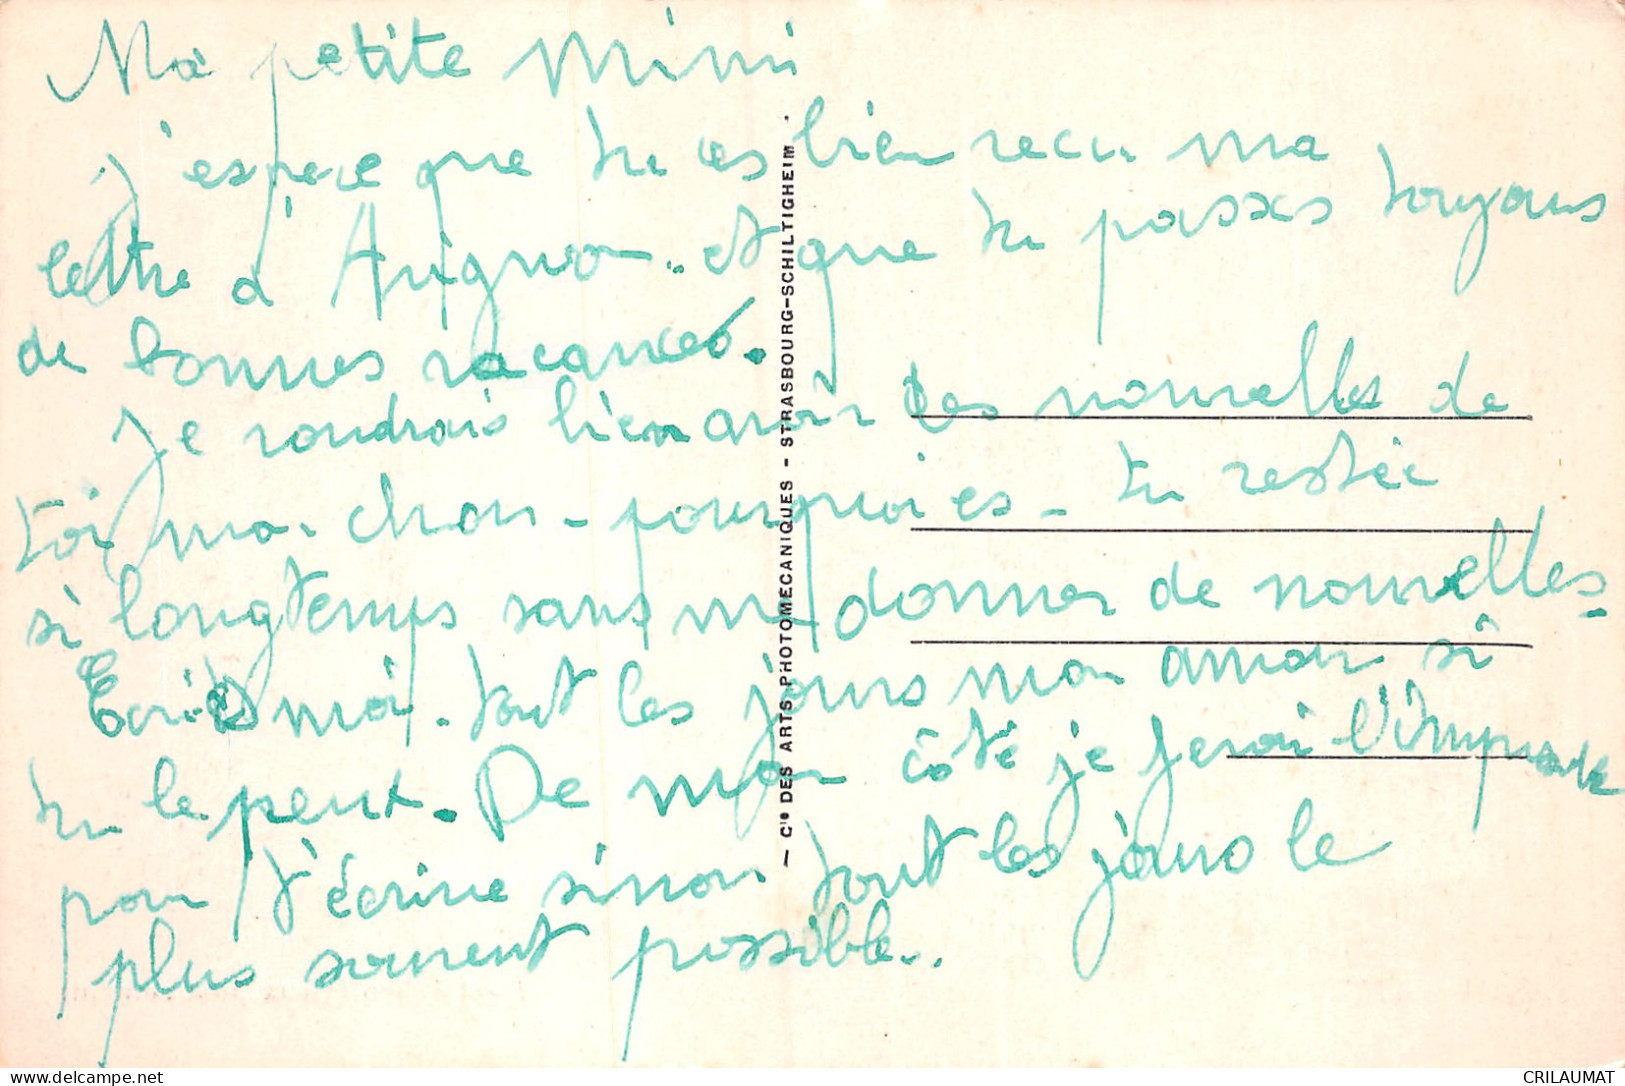 Ma petite Mimi
J'espere que tu as bien recu ma
lettre à Avignon. et que tu passes toujours
de bonnes vacances.
Je voudrais bien avoir des nouvelles de
toi mon chou - pourquoi es - tu restée
si longtemps sans me donner de nouvelles -
Ecris moi. tout les jours mon amour si
tu le peux. De mon côté je ferai l'impossible
pour t'écrire sinon tout les jours le
plus souvent possible..
— Cie DES ARTS PHOTOMECANIQUES - STRASBOURG-SCHILTIGHEIM .
delcampe.net
CRILAUMAT